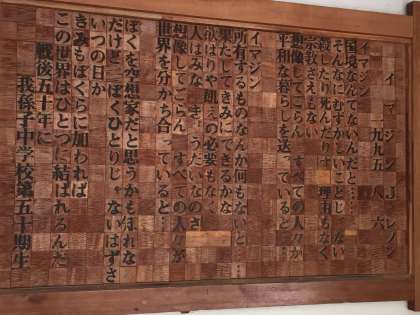 イマジン J・レノン
一九九五 八 六
イマジン
国境なんてないんだと……
そんなにむずかしいことじゃない
殺したり死んだりする理由もなく
宗教さえもない
想像してごらん すべての人々が
平和な暮らしを送っていると…
イマジン
所有するものなんか何もないと
果たしてきみにできるかな
欲ばりや飢えの必要もなく
人はみなきょうだいなのさ
想像してごらん すべての人々が
世界を分かち合っていると…
ぼくを空想家だと思うかもしれな
だけど ぼくひとりじゃないはずさ
いつの日か
きみもぼくらに加われば
この世界はひとつに結ばれるんだ
戦後五十年に
我孫子中学校第五十期生